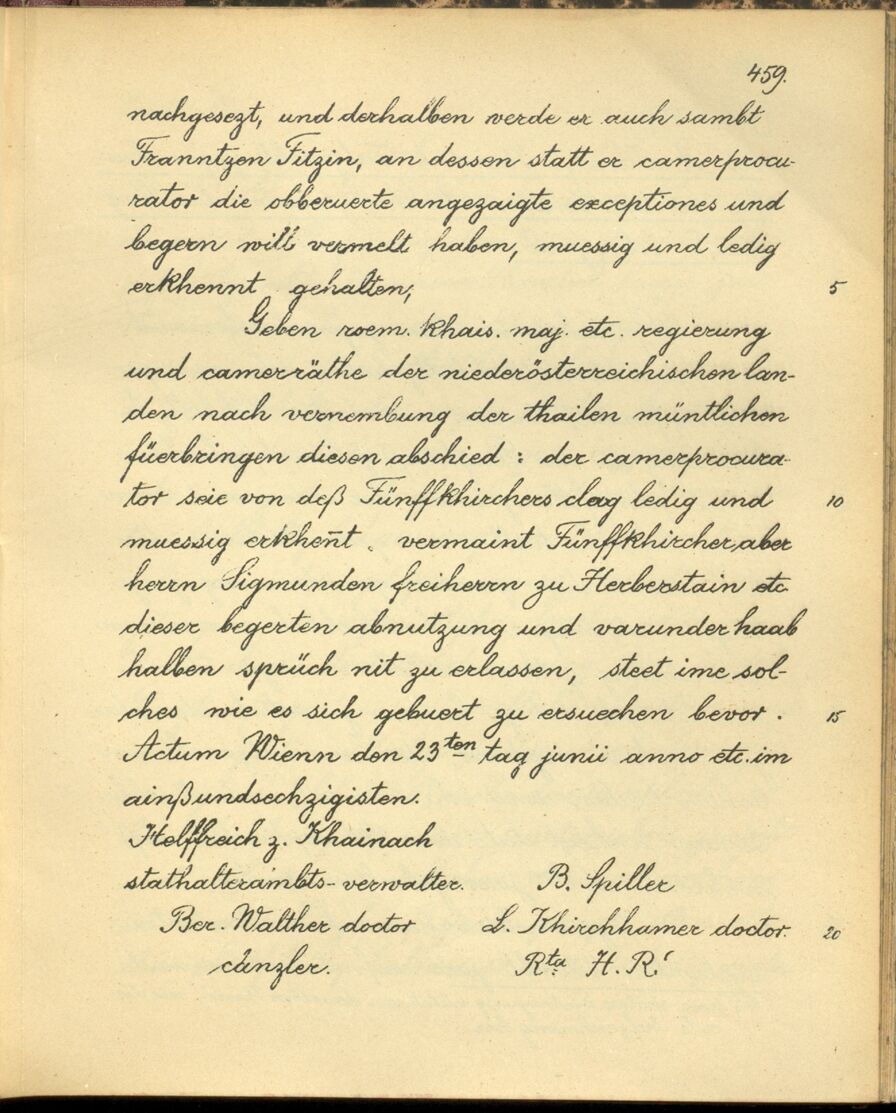 459.
nachgesezt, und derhalben werde er auch sambt
Franntzen Fitzin, an dessen statt er camerprocu-
rator die obberuerte angezaigte exceptiones und
begern will vermelt haben, muessig und ledig
erkhennt gehalten; 5
Geben roem. khais. maj. etc. regierung
und camerräthe der niederösterreichischen lan-
den nach vernembung der thailen müntlichen
füerbringen diesen abschied : der camerprocura-
tor seie von deß Fünffkhirchers clag ledig und 10
muessig erkhen̄t. vermaint Fünffkhircher aber
herrn Sigmunden freiherrn zu Herberstain etc
dieser begerten abnutzung und varunder haab
halben sprüch nit zu erlassen, steet ime sol-
ches wie es sich gebuert zu ersuechen bevor. 15
Actum Wienn den 23ten tag junii anno etc. im
ainßundsechzigisten.
Helffreich z. Khainach
stathalterambts-verwalter. B. Spiller
Ber. Walther doctor L. Khirchhamer doctor. 20
cänzler. Rta H. R.